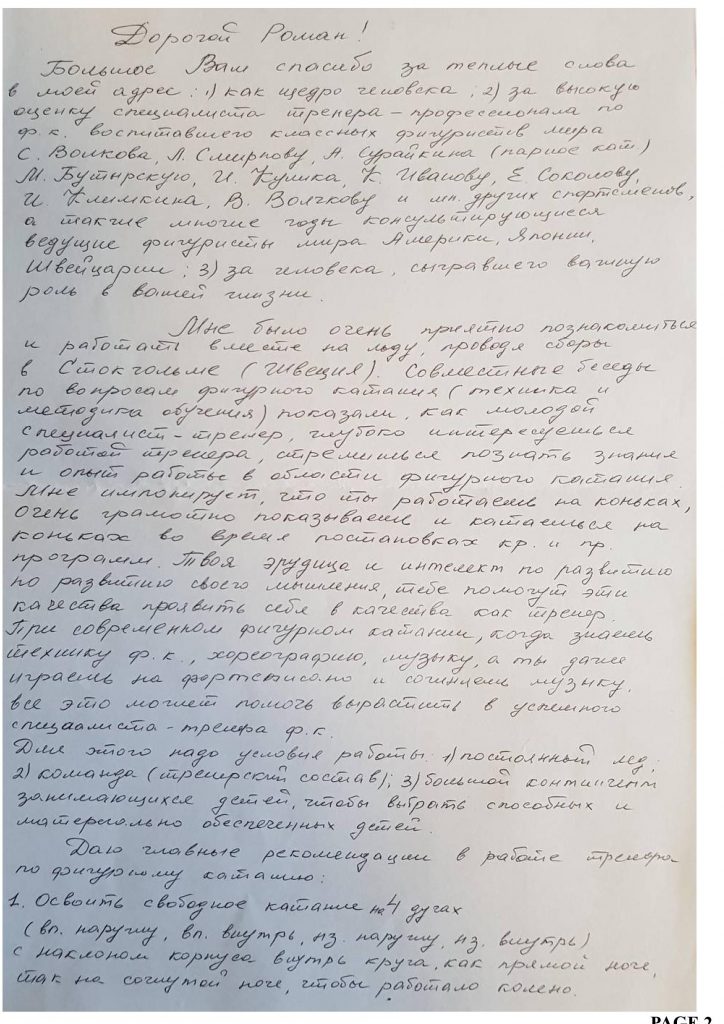 Дорогой Роман!
Большое Вам спасибо за теплые слова
в моей адрес: 1) как щедро человека; 2) за высокую
оценку специалиста тренера-профессионала по
ф.к. воспитавшего классных фигуристов мира
С. Волкова, Л. Смирнову, А. Сурайкина (парное кат)
М. Бутырскую, И. Кулика, К. Иванову, Е. Соколову,
И. Климкина, В. Волчкову и мн. других спортсменов,
а также многие годы консультирующиеся
ведущие фигуристы мира Америки, Японии,
Швейцарии; 3) за человека, сыгравшего важную
роль в вашей жизни.
Мне было очень приятно познакомиться
и работать вместе на льду, проводя сборы
в Стокгольме (Швеция). Совместные беседы
по вопросам фигурного катания (техника и
методика обучения) показали, как молодой
специалист-тренер, глубоко интересуешься
работой тренера, стремишься познать знания
и опыт работы в области фигурного катания.
Мне импонирует, что ты работаешь на коньках,
очень грамотно показываешь и катаешься на
коньках во время постановках кр. и пр.
программ. Твоя эрудица и интелект по развитию
по развитию своего мышления, тебе помогут эти
качества проявить себя в качества как тренер.
При современном фигурном катании, когда знаешь
технику ф.к., хореографию, музыку, а ты даже
играешь на фортепиано и сочиняешь музыку,
все это может помочь вырастить в успешного
специалиста-тренера ф.к.
Для этого надо условия работы: 1) постоянный лед;
2) команда (тренерский состав); 3) большой контингент
занимающихся детей, чтобы выбрать способных и
материально обеспеченных детей.
Даю главные рекомендации в работе тренера
по фигурному катанию:
1. Освоить свободное катание на 4 дугах
(вп. наружу, вп. внутрь, нз. наружу, нз. внутрь)
с наклоном корпуса внутрь круга, как прямой ноге,
так на согнутой ноге, чтобы работало колено.
PAGE 2